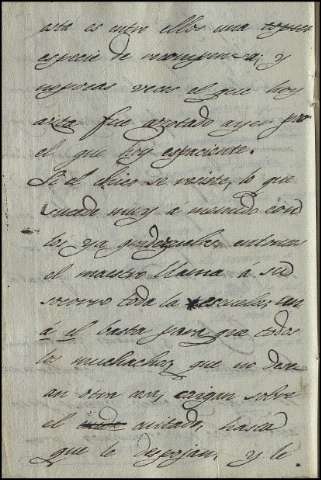 esta es entre ellos una
especie de recompensa; y
no pocas veces el que hoy
azota fue azotado ayer por
el que hoy es paciente.
Si el chico se resiste, lo que
sucede muy á menudo con
los ya grandezuelos, entonces
el maestro llama á su
socorro toda la escuela; un
á él basta para que todos
los muchachos, que no desean
otra cosa, caigan sobre
el cuitado, hasta
que lo despojan, y le